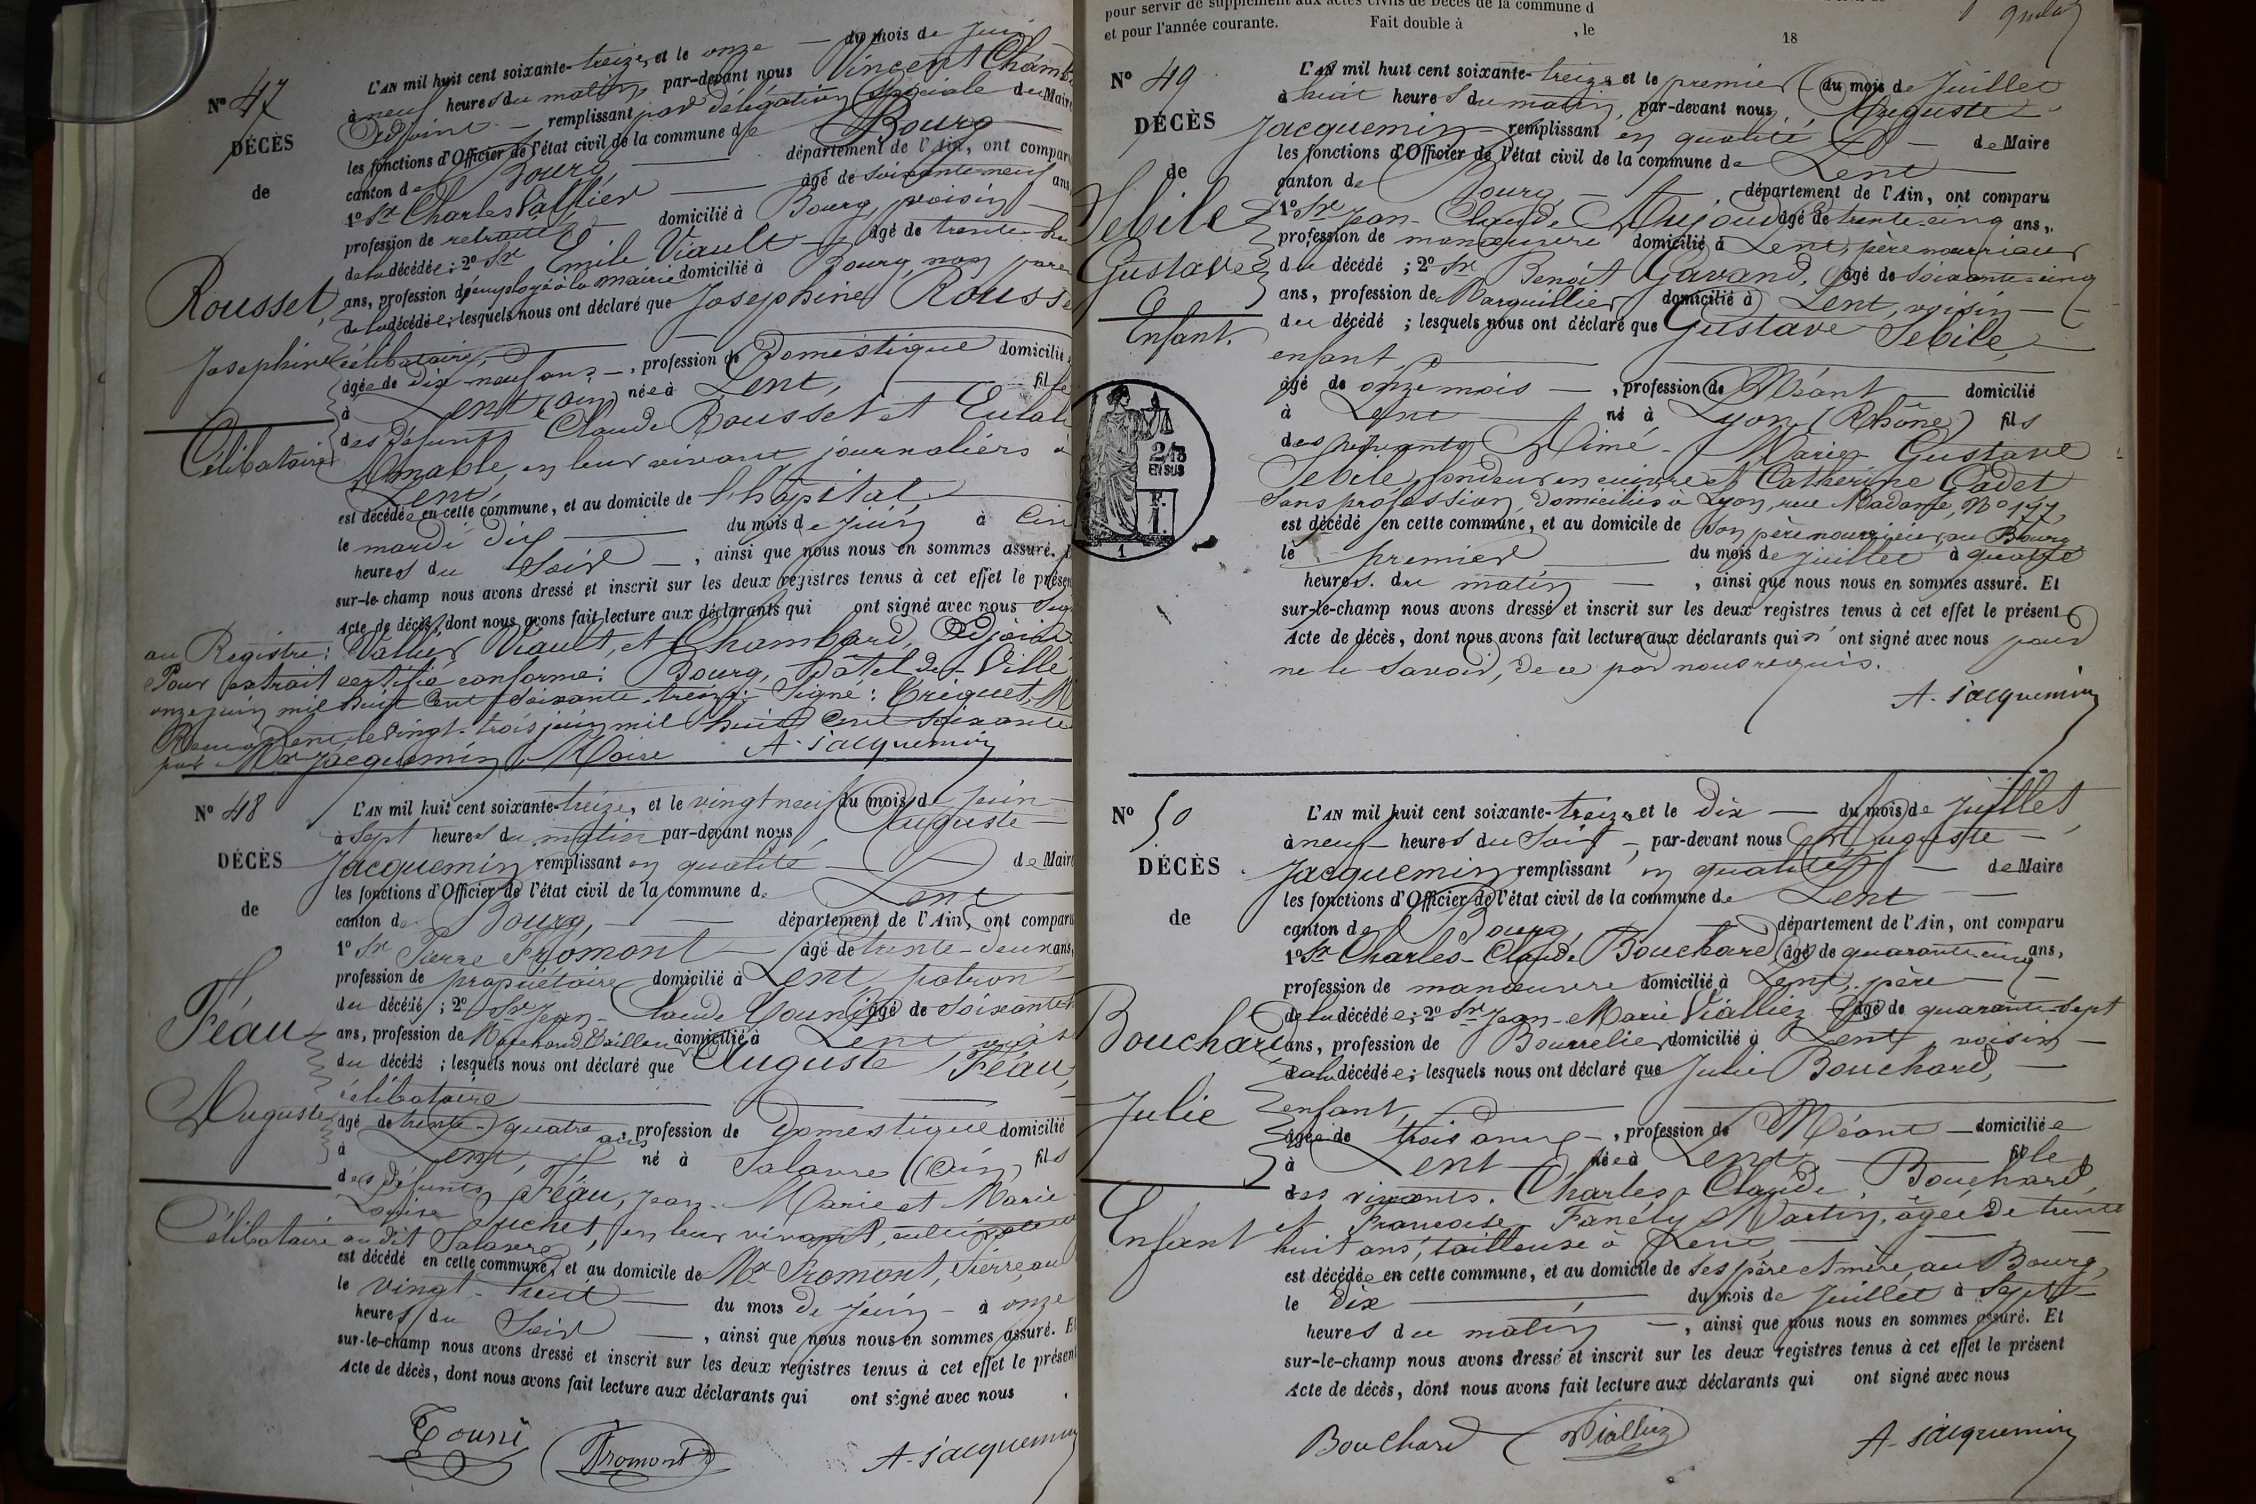 N° 47
DÉCÈS
de
Rousset,
Josephine
Célibataire
L'AN mil huit cent soixante-treize, et le onze — du mois de Juin
à neuf heures du matin, par-devant nous Vincent Chamb
Adjoint — remplissant par délégation spéciale du Maire
les fonctions d'Officier de l'état civil de la commune de Bourg
canton de Bourg, — département de l'Ain, ont compar
1° Sr Charles Vallier — âgé de soixante-neuf ans
profession de retraité, — domicilié à Bourg, voisin —
de la décédée; 2° Sr Emile Viault — âgé de trente-hu
ans, profession d'employé à la mairie domicilié à Bourg, non paren
de la décédée; lesquels nous ont déclaré que Joséphine Rousse
célibataire, — 
âgée de dix-neuf ans —, profession de Domestique domicilié
à Lent (Ain) née à Lent, — fille
des défunts Claude Rousset et Eulali
Amable, en leur vivant journaliers à
Lent,
est décédée en cette commune, et au domicile de l'hôpital —
le mardi dix — du mois de Juin à cin
heures du soir —, ainsi que nous nous en sommes assuré.
sur-le-champ nous avons dressé et inscrit sur les deux registres tenus à cet effet le présen
Acte de décès, dont nous avons fait lecture aux déclarants qui ont signé avec nous Sign
au Registre: Vallier Viault, et Chambard, Adjoint
Pour extrait certifié conforme: Bourg, Hôtel de Ville
onze juin mil huit cent soixante-treize. Signé:
à Lent le vingt-trois juin mil huit cent soixante
par Mr Jacquemin, Maire A. Jacquemin
N° 48
DÉCÈS
de
Féau
Auguste
Célibataire
L'AN mil huit cent soixante-treize, et le vingt neuf du mois de Juin —
à sept heures du matin par-devant nous Auguste —
Jacquemin remplissant en qualité — de Maire
les fonctions d'Officier de l'état civil de la commune de Lent
canton de Bourg, — département de l'Ain, ont comparu
1° Sr Pierre Fromont — âgé de trente-deux ans,
profession de propriétaire domicilié à Lent patron —
du décédé; 2° Sr Jean-Claude âgé de soixante
ans, profession de Marchand Tailleur domicilié à Lent
du décédé; lesquels nous ont déclaré que Auguste Féau,
célibataire —
âgé de trente-quatre ans, profession de Domestique domicilié
à Lent, né à Salavre (Ain) fils
des défunts Féau, Jean-Marie et Marie
Louise en leur vivant, cultivateurs
au dit Salavre,
est décédé en cette commune, et au domicile de Mr Fromont, Pierre, au
le vingt-huit — du mois de Juin — à onze
heures du soir —, ainsi que nous nous en sommes assuré. Et
sur-le-champ nous avons dressé et inscrit sur les deux registres tenus à cet effet le présent
Acte de décès, dont nous avons fait lecture aux déclarants qui ont signé avec nous
Fromont A. Jacquemin
pour servir de supplément aux actes civils de Décès de la commune d
et pour l'année courante. Fait double à , le 18
N° 49
DÉCÈS
de
Sebile
Gustave
Enfant.
2/10
EN SUS
F.
1.
1
L'AN mil huit cent soixante-treize et le premier du mois de Juillet
à huit heures du matin, par-devant nous, Auguste
Jacquemin remplissant en qualité — de Maire
les fonctions d'Officier de l'état civil de la commune de Lent
canton de Bourg — département de l'Ain, ont comparu
1° Sr Jean-Claude âgé de trente-cinq ans,
profession de manœuvre domicilié à Lent, père nourricier
du décédé; 2° Sr Benoît Gavand, âgé de soixante-cinq
ans, profession de Marguillier domicilié à Lent, voisin —
du décédé; lesquels nous ont déclaré que Gustave Sebile,
enfant, —
âgé de onze mois —, profession de Néant — domicilié
à Lent — né à Lyon (Rhône) fils
des vivants Aimé-Marie Gustave
Sebile fondeur en cuivre et Catherine Cadet
sans profession, domiciliés à Lyon, rue Madame, N°
est décédé en cette commune, et au domicile de son père nourricier, au Bourg
le premier — du mois de Juillet à quatre
heures du matin —, ainsi que nous nous en sommes assuré. Et
sur-le-champ nous avons dressé et inscrit sur les deux registres tenus à cet effet le présent
Acte de décès, dont nous avons fait lecture aux déclarants qui n'ont signé avec nous pour
ne le savoir, de ce par nous requis.
A. Jacquemin
N° 50
DÉCÈS
de
Bouchard
Julie
Enfant
L'AN mil huit cent soixante-treize et le dix — du mois de Juillet,
à neuf heures du soir —, par-devant nous Auguste —
Jacquemin remplissant en qualité — de Maire
les fonctions d'Officier de l'état civil de la commune de Lent —
canton de Bourg, département de l'Ain, ont comparu
1° Sr Charles-Claude Bouchard âgé de quarante-cinq ans,
profession de manœuvre domicilié à Lent, père —
de la décédée; 2° Sr Jean-Marie Vialliez âgé de quarante-sept
ans, profession de Bourrelier domicilié à Lent, voisin —
de la décédée; lesquels nous ont déclaré que Julie Bouchard, —
enfant, —
âgée de trois ans —, profession de Néant — domiciliée
à Lent — née à Lent — fille
des vivants. Charles-Claude Bouchard,
et Françoise Fanély Martin, âgée de trente
huit ans, tailleuse à Lent, —
est décédée en cette commune, et au domicile de ses père et mère, au Bourg,
le dix — du mois de Juillet à sept
heures du matin —, ainsi que nous nous en sommes assuré. Et
sur-le-champ nous avons dressé et inscrit sur les deux registres tenus à cet effet le présent
Acte de décès, dont nous avons fait lecture aux déclarants qui ont signé avec nous
Bouchard Vialliez A. Jacquemin